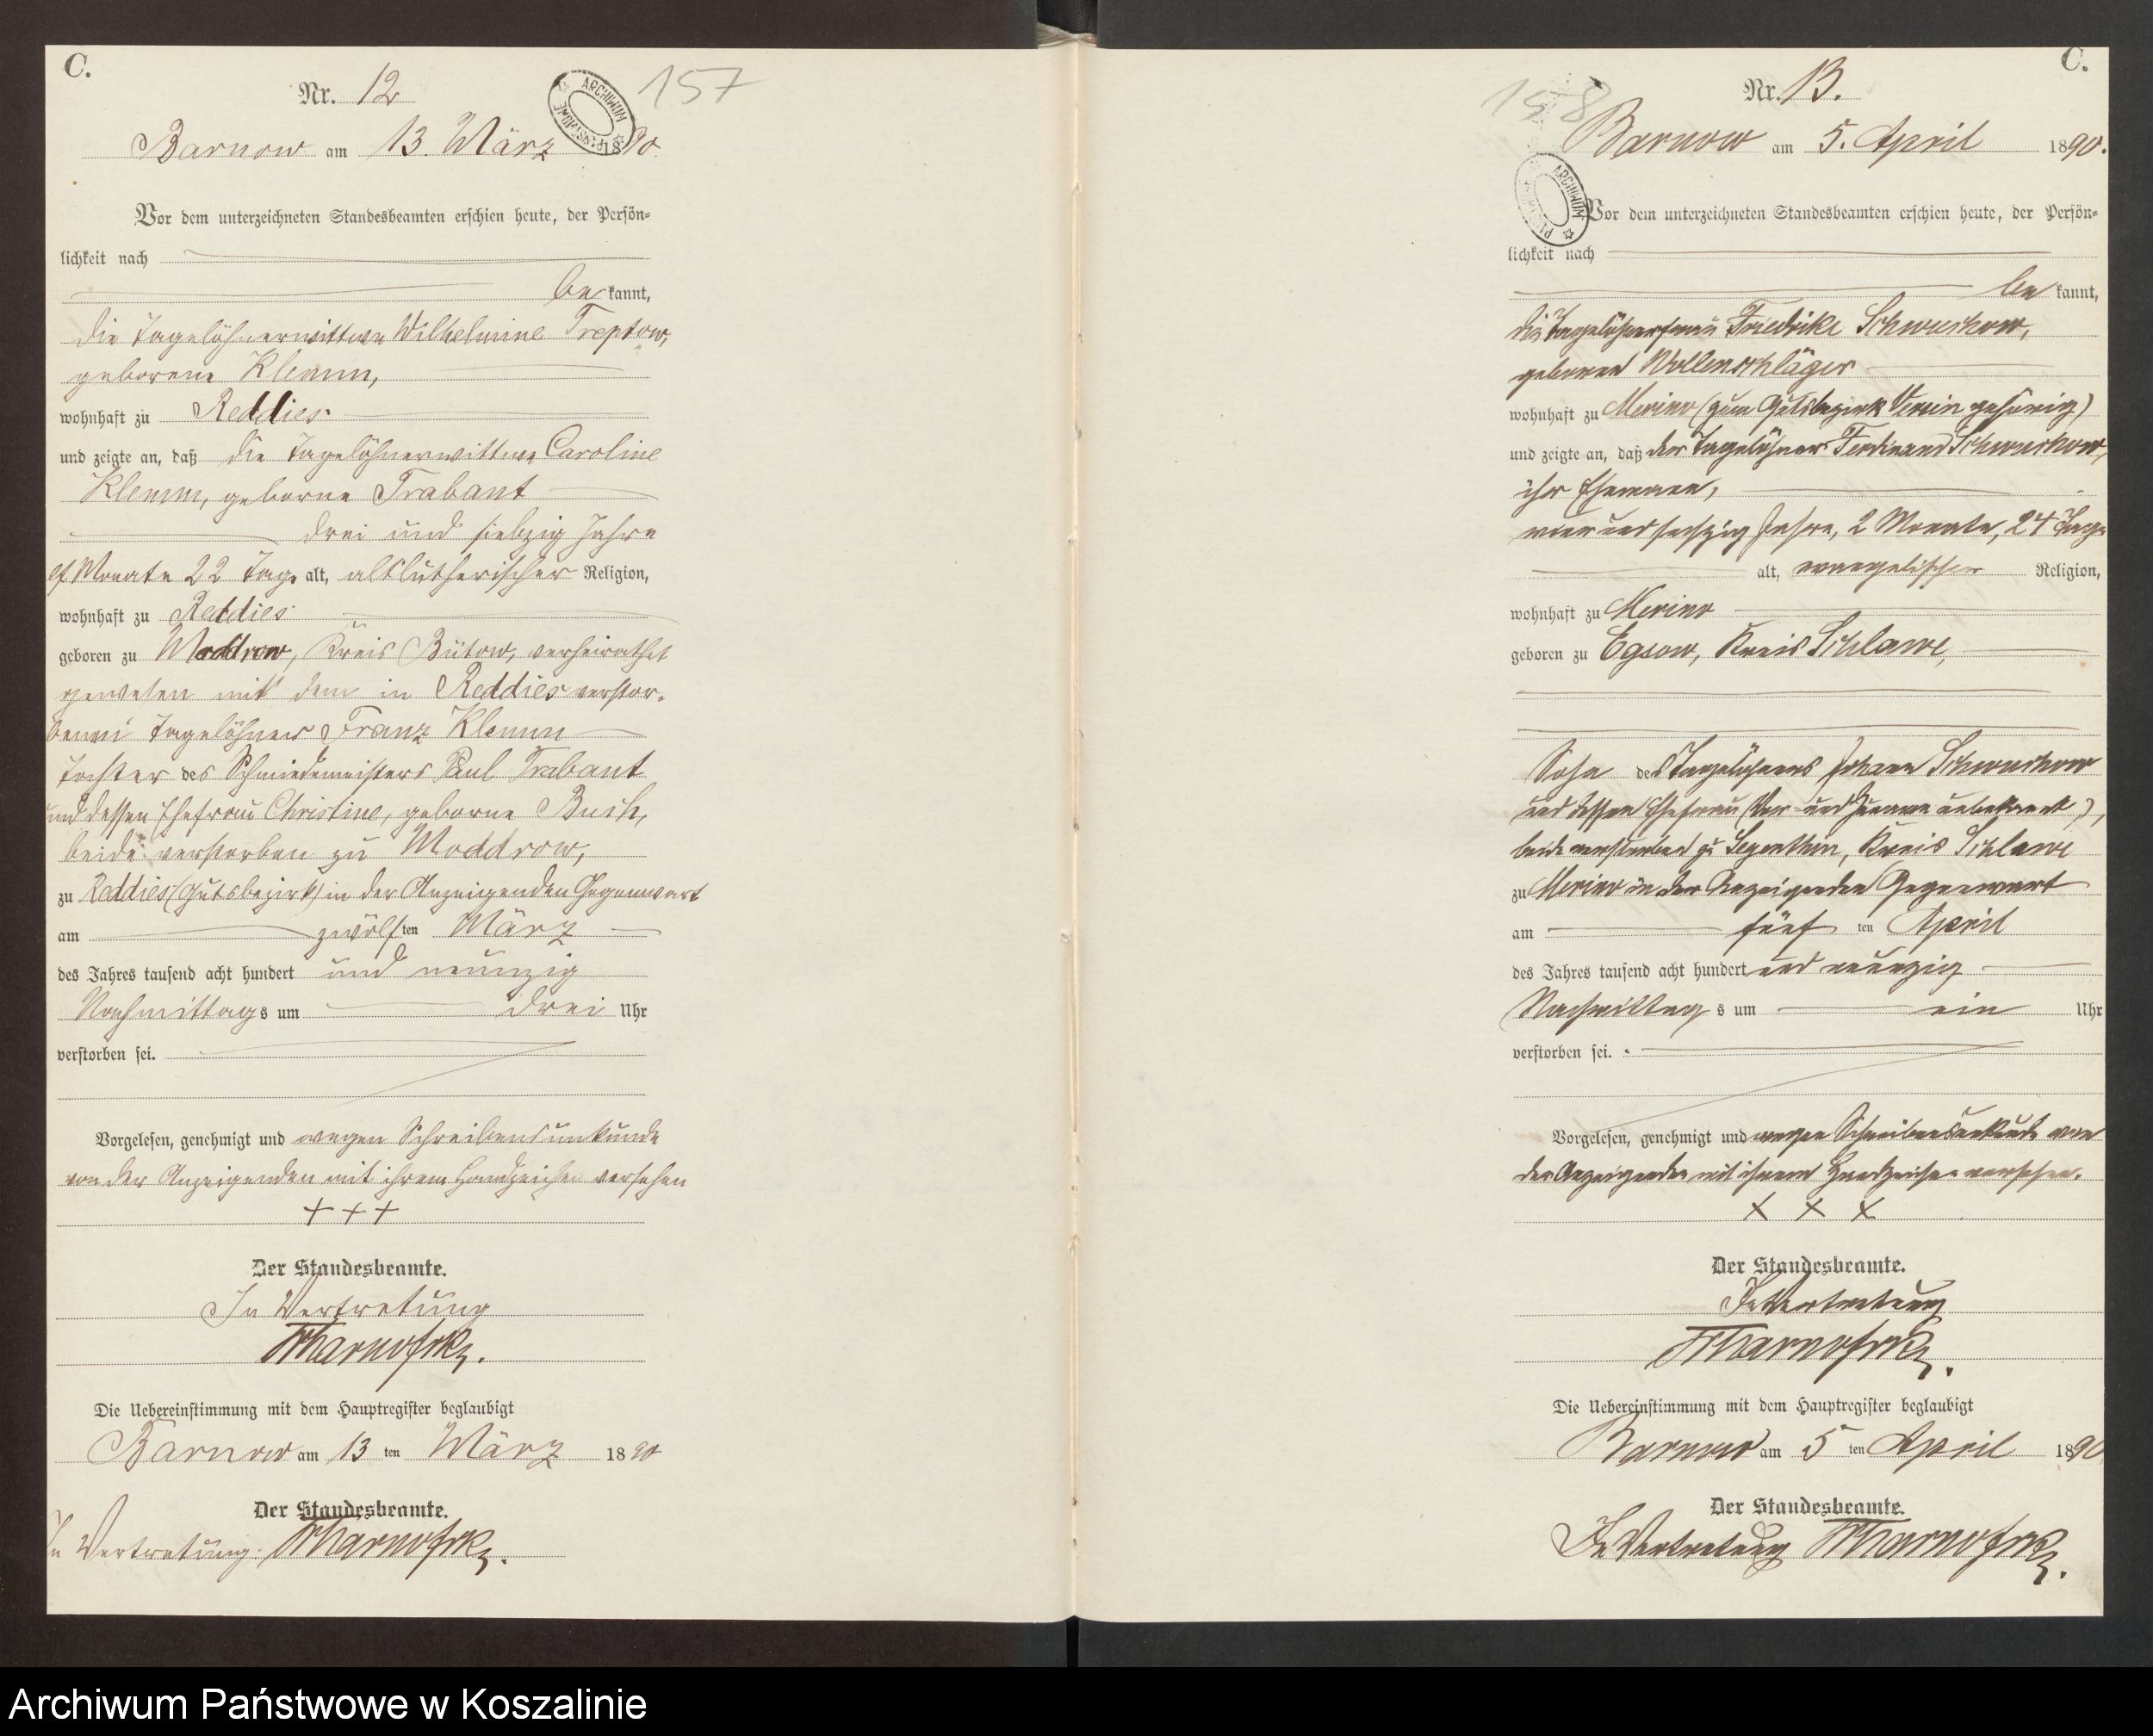 C.
Nr. 12
157
ARCHIWUM
Barnow am 13. März 1890
Vor dem unterzeichneten Standesbeamten erschien heute, der Persön=
lichkeit nach
be kannt,
die Tagelöhnerwittwe Wilhelmine Treptow,
geborene Klemm,
wohnhaft zu Reddies
und zeigte an, daß die Tagelöhnerwittwe Caroline
Klemm, geborne Trabant
drei und siebzig Jahre
elf Monate 22 Tage alt, altlutherischer Religion,
wohnhaft zu Reddies
geboren zu Moddrow, Kreis Bütow, verheirathet
gewesen mit dem in Reddies verstor-
benen Tagelöhner Franz Klemm
Tochter des Schmiedemeisters Paul Trabant
und dessen Ehefrau Christine, geborne Bush,
beide verstorben zu Moddrow,
zu Reddies (Gutsbezirk) in der Anzeigenden Gegenwart
am zwölf ten März
des Jahres tausend acht hundert und neunzig
Nachmittags um drei Uhr
verstorben sei.
Vorgelesen, genehmigt und wegen Schreibensunkunde
von der Anzeigenden mit ihrem Handzeichen versehen
+ + +
Der Standesbeamte.
In Vertretung
Die Uebereinstimmung mit dem Hauptregister beglaubigt
Barnow am 13 ten März 1890
Der Standesbeamte.
In Vertretung.
C.
Nr. 13.
158
ARCHIWUM
Barnow am 5. April 1890.
Vor dem unterzeichneten Standesbeamten erschien heute, der Persön=
lichkeit nach
be kannt,
die Tagelöhnerfrau Friedrike Schwuchow,
geborene Wollenschläger
wohnhaft zu Merino (zum Gutsbezirk Versin gehörig)
und zeigte an, daß der Tagelöhner Ferdinand Schwuchow,
ihr Ehemann,
vier und sechszig Jahre, 2 Monate, 24 Tage
alt, evangelischer Religion,
wohnhaft zu Merino
geboren zu Egsow, Kreis Schlawe,
Sohn des Tagelöhners Johann Schwuchow
und dessen Ehefrau (Vor- und Zuname unbekannt),
beide verstorben zu Segenthin, Kreis Schlawe
zu Merino in der Anzeigenden Gegenwart
am fünf ten April
des Jahres tausend acht hundert und neunzig
Nachmittag s um ein Uhr
verstorben sei.
Vorgelesen, genehmigt und wegen Schreibensunkunde von
der Anzeigenden mit ihrem Handzeichen versehen.
X X X
Der Standesbeamte.
In Vertretung
Die Uebereinstimmung mit dem Hauptregister beglaubigt
Barnow am 5 ten April 1890
Der Standesbeamte.
In Vertretung
Archiwum Państwowe w Koszalinie